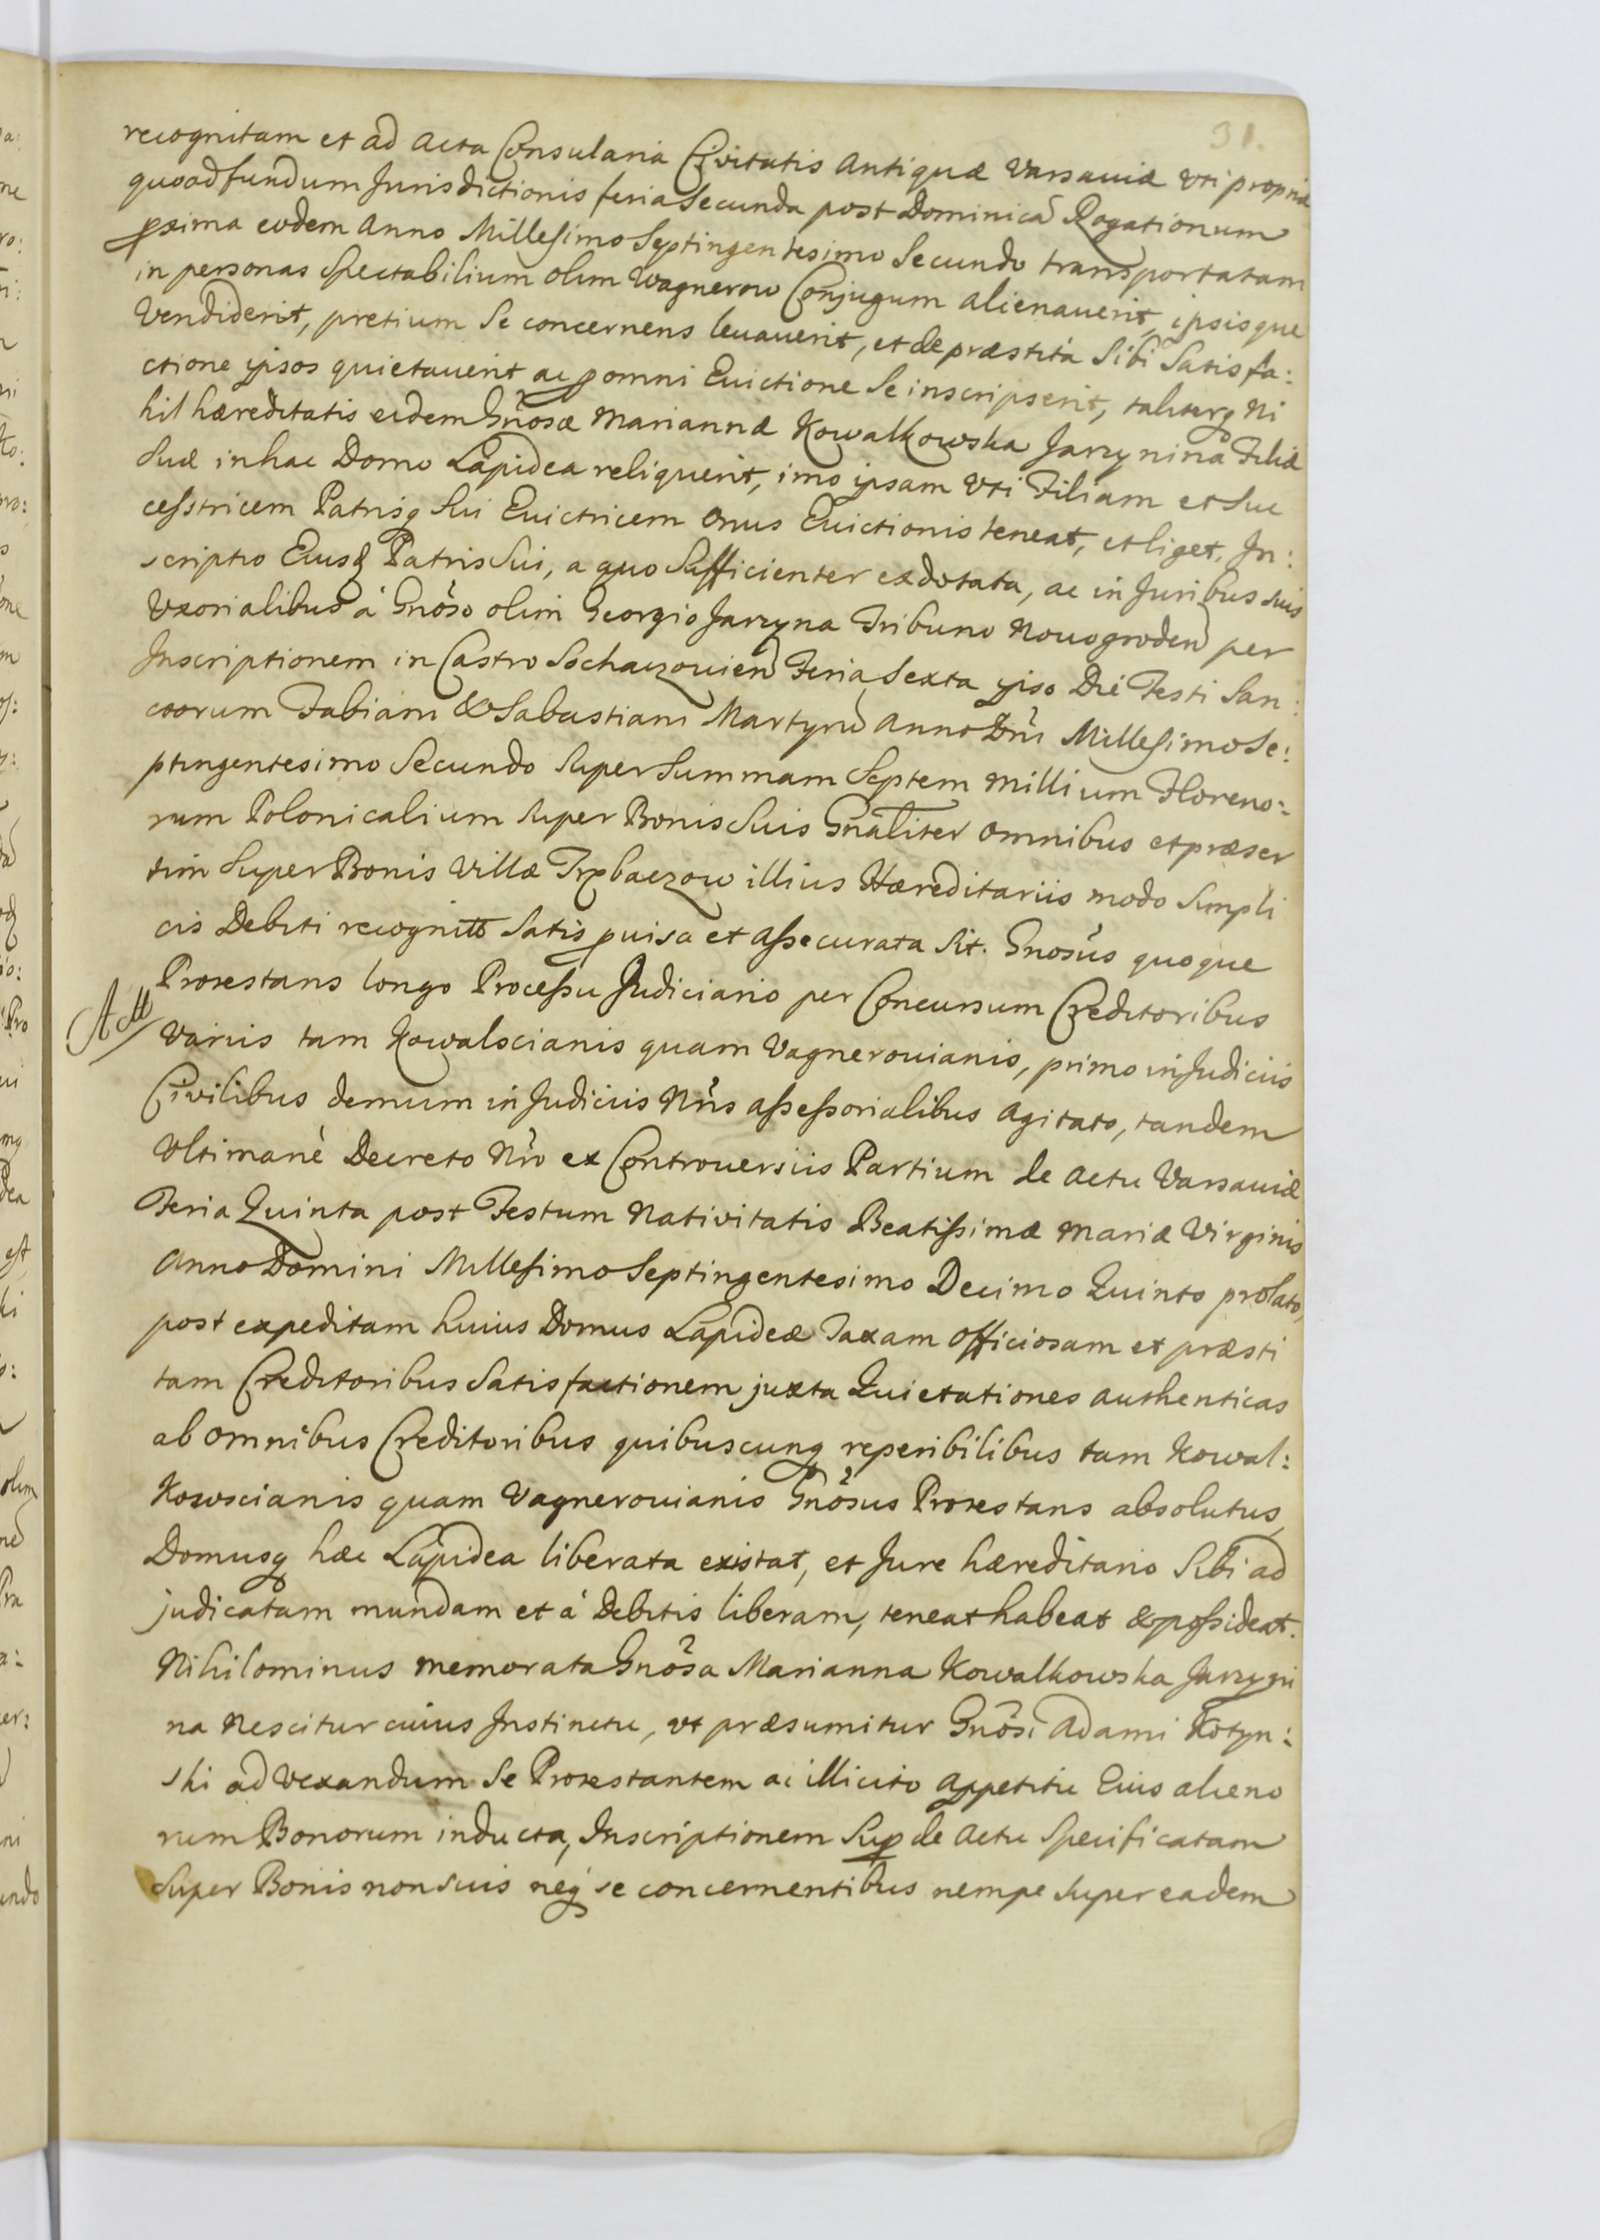 31.
recognitam et ad Acta Consularia Civitatis Antiquæ Varsaviæ Uti propria
quoad fundum Jurisdictionis feria Secunda post Dominicã Rogationum
pxima eodem Anno Millesimo Septingentesimo Secundo transportatam
in personas Spectabilium olim Wagnerow Conjugum alienauerit, ipsisque
Vendiderit, pretium Se concernens leuauerit, et de præstita Sibi Satisfa:
ctione ipsos quietauerit ac p omni Euictione Se inscripserit, taliterq Ni
hil hæreditatis eidem Gnosæ Mariannæ Kowalkowska Jarzynina Filiæ
Suæ in hac Domo Lapidea reliquerit, imo ipsam Uti Filiam et Suc
cesstricem Patrisq Sui Euictricem Onus Euictionis teneat, et liget. In:
scriptio Eiusd Patris Sui, a quo Sufficienter exdotata, ac in Juribus suis
Uxorialibus á Gnõso olim Georgio Jarzyna Tribuno Nouogroden per
Inscriptionem in Castro Sochaczouien Feria Sexta ipso Die Festi San:
ctorum Fabiani & Sabastiani Martyrũ Anno Dni Millesimo Se:
ptingentesimo Secundo Super Summam Septem Millium Floreno:
rum Polonicalium Super Bonis Suis Gnãliter omnibus et præser
tim Super Bonis Villæ Trzbaczow illius Hæreditariis modo Simpli
cis Debiti recognitt Satis puisa et assecurata Sit. Gnosus quoque
Protestans longo Processu Judiciario per Concursum Creditoribus
Variis tam Kowalscianis quam Vagnerouianis, primo in Judiciis
Civilibus demum in Judiciis Nris assessorialibus agitato, tandem
Ultimanè Decreto Nro ex Controuersiis Partium de Actu Varsauiæ
Feria Quinta post Festum Nativitatis Beatissimæ Mariæ Virginis
Anno Domini Millesimo Septingentesimo Decimo Quinto prolato,
post expeditam huius Domus Lapideæ Taxam officiosam et præsti
tam Creditoribus Satisfactionem juxta Quietationes authenticas
ab omnibus Creditoribus quibuscunq reperibilibus tam Kowal:
Kowscianis quam Vagnerouianis Gnõsus Protestans absolutus,
Domusq hæc Lapidea liberata existat, et Jure hæreditario Sibi ad
judicatam mundam et á Debitis liberam, teneat habeat & possideat.
Nihilominus memorata Gnõsa Marianna Kowalkowska Jarzyni
na Nescitur cuius Instinctu, ut præsumitur Gnõsi Adami Kotyn:
ski ad vexandum Se Protestantem ac illicito Appetitu Eius alieno
rum Bonorum inducta, Inscriptionem Sup de Actu Specificatam
Super Bonis non suis neq se concernentibus nempe super eadem